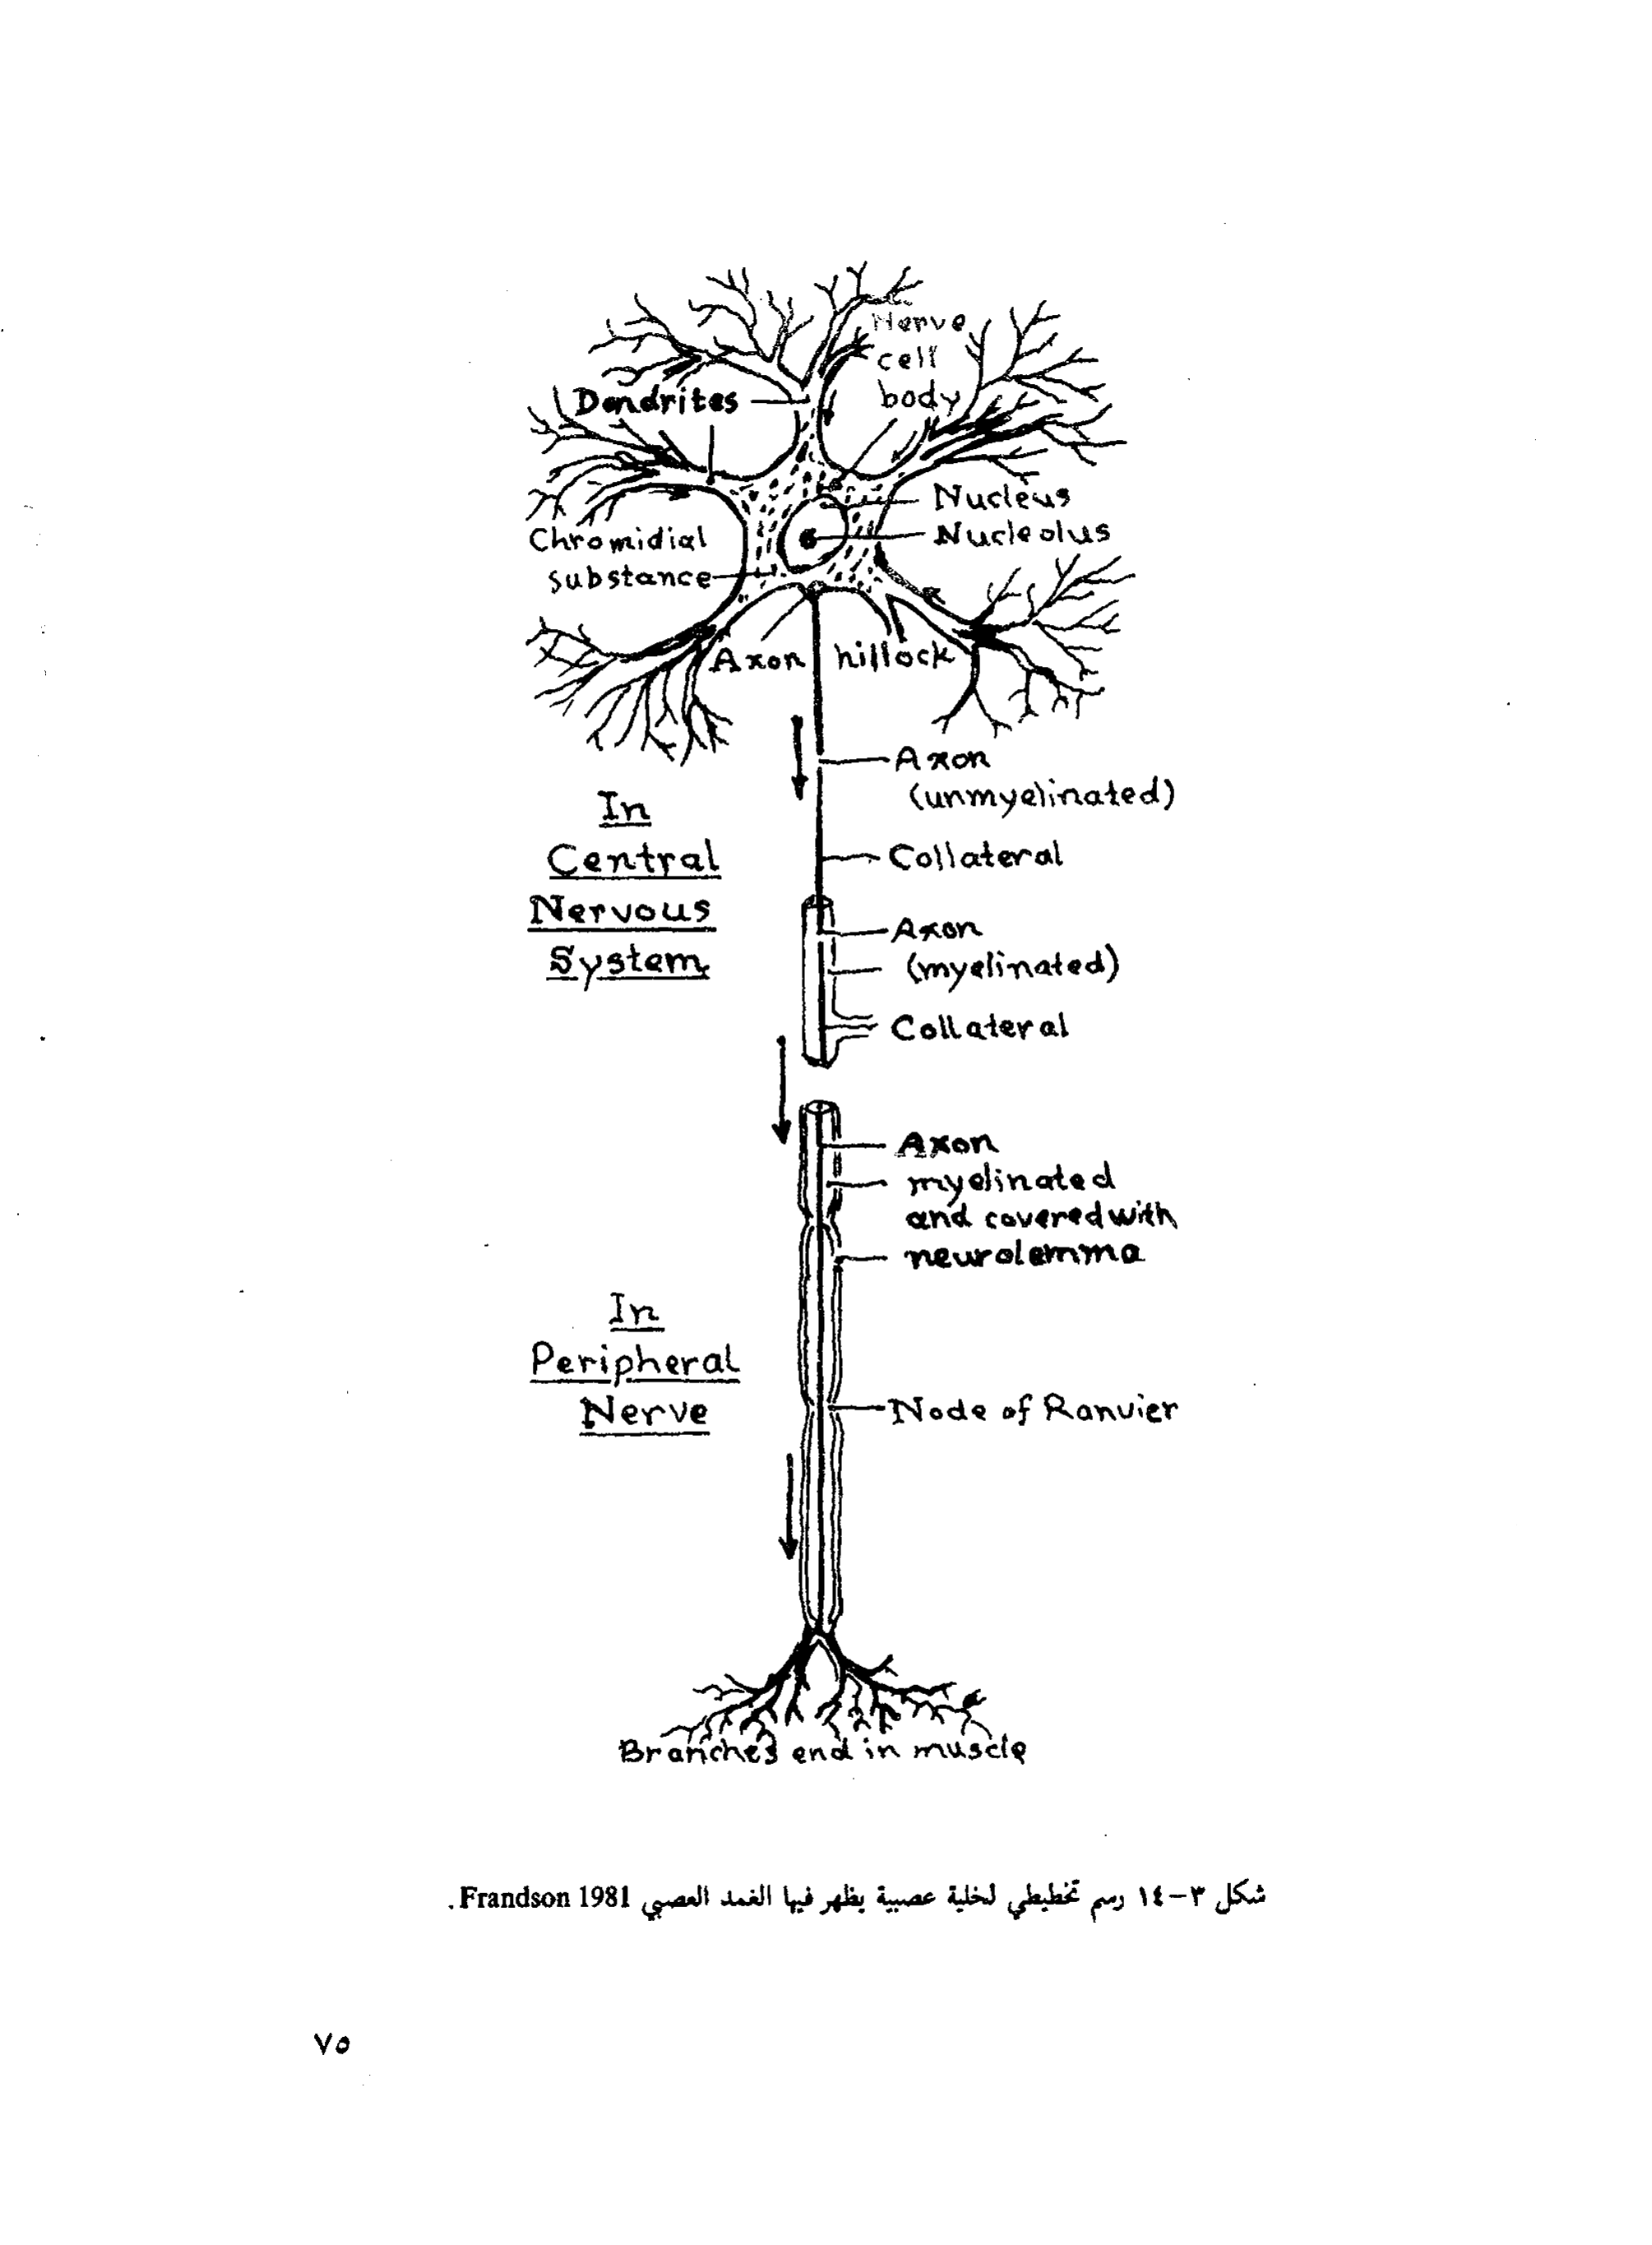 Nerve
cell
body
Dendrites
Nucleus
Nucleolus
Chromidial
substance
Axon hillock
Axon
(unmyelinated)
In
Central
Nervous
System
Collateral
Axon
(myelinated)
Collateral
Axon
myelinated
and covered with
neurolemma
In
Peripheral
Nerve
Node of Ranvier
Branches end in muscle
شكل ٣-١٤ رسم تخطيطي لخلية عصبية يظهر فيها الغمد العصبي Frandson 1981 .
٧٥